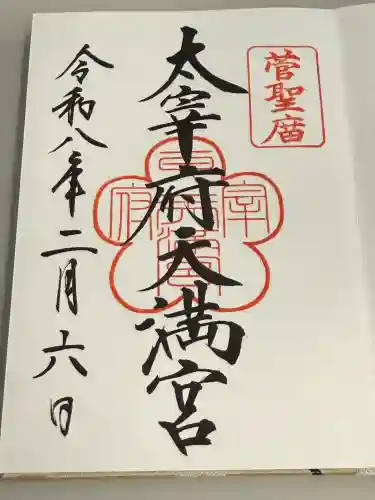 菅聖庿
太宰府天満宮
令和八年二月十六日